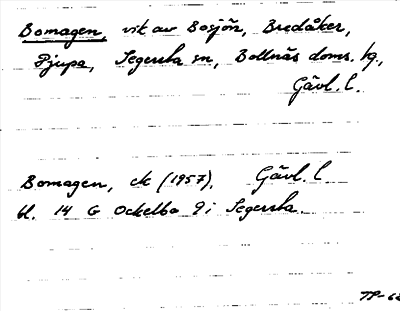 Bomagen, vik av Bosjön, Bredåker,
Djupa, Segersta sn, Bollnäs doms. tg,
Gävl. l.
Bomagen, ek (1957), Gävl. l
bl. 14 G Ockelbo 9 i Segersta.
TP-62